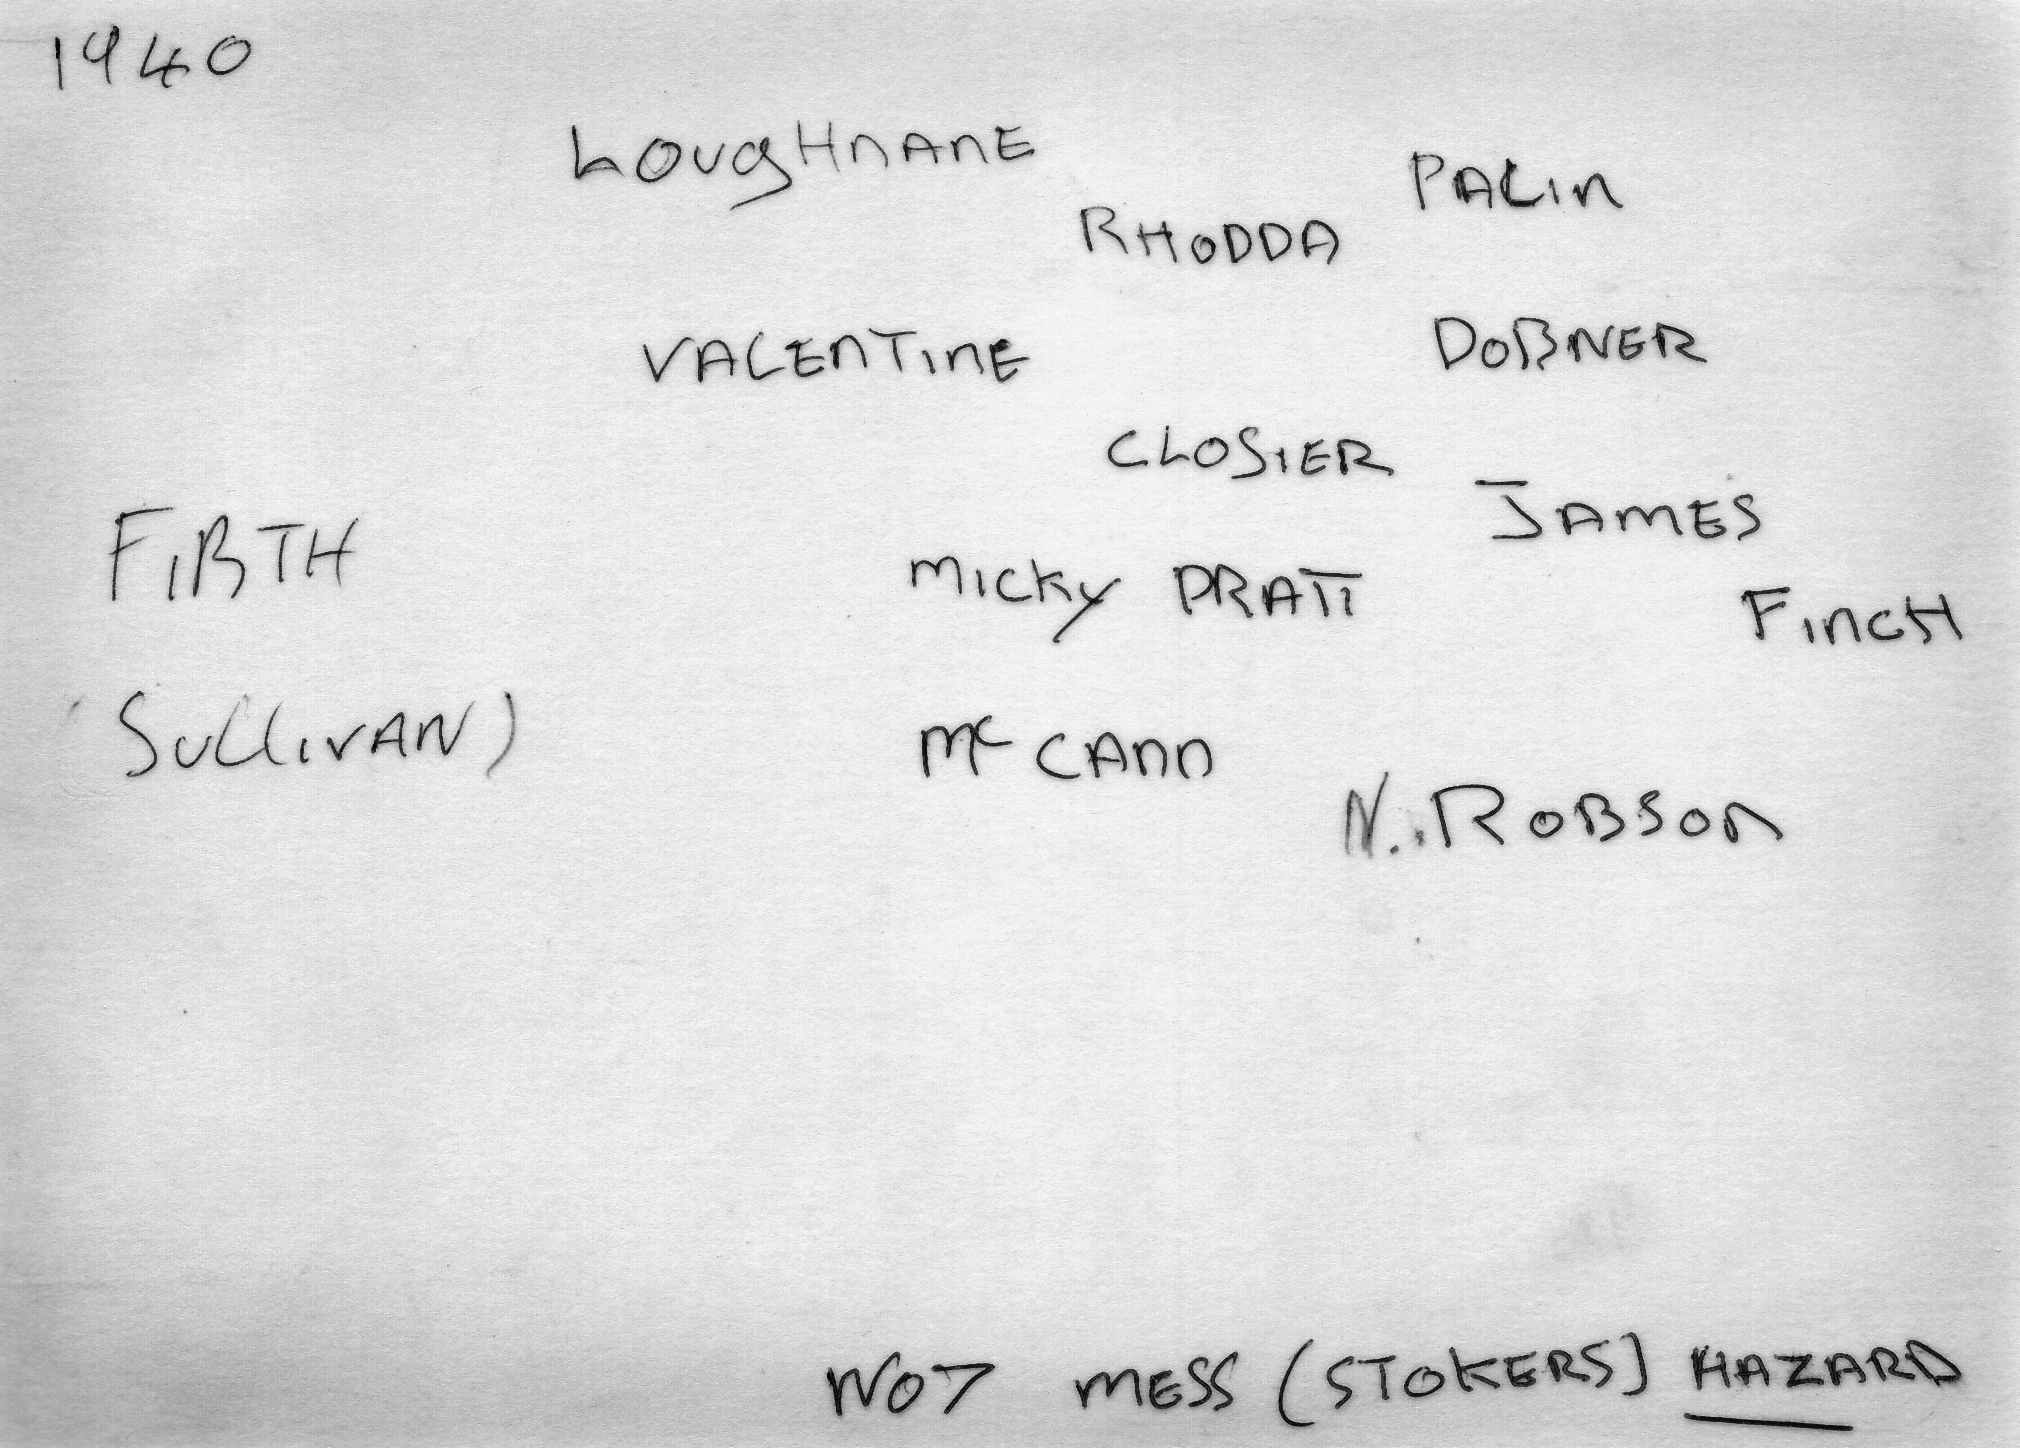 1940
LOUGHNANE
PALIN
RHODDA
VALENTINE
DOBNER
CLOSIER
JAMES
FIRTH
MICKY PRATT
FINCH
(SULLIVAN)
Mc CANN
N. ROBSON
NO7 MESS (STOKERS) HAZARD